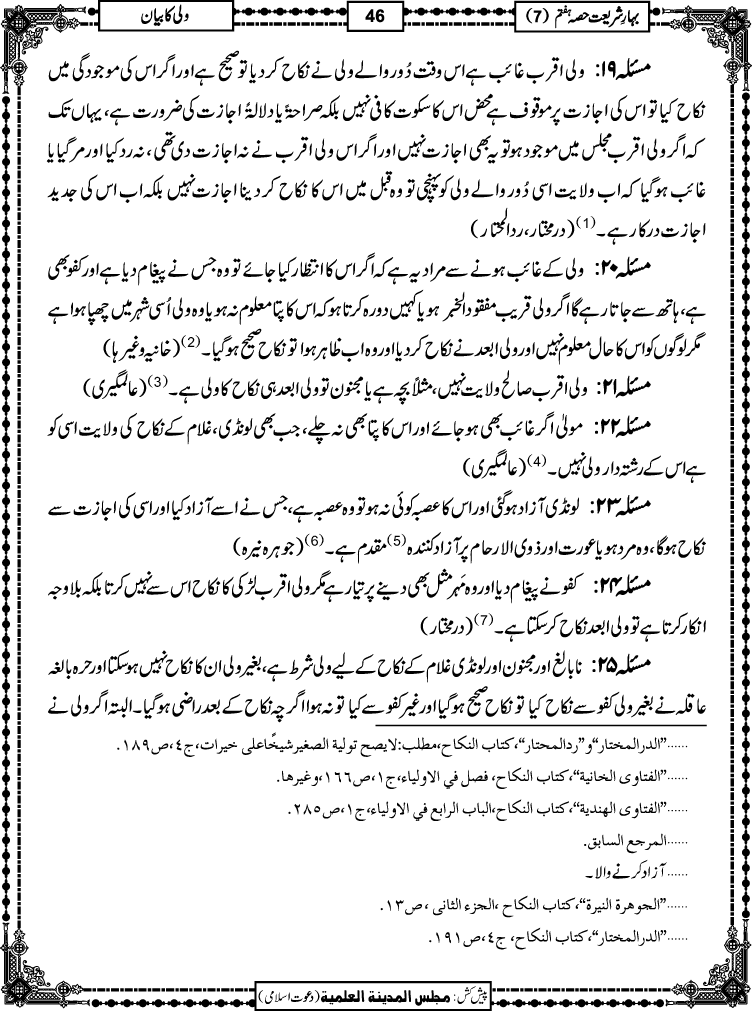 بہارِ شریعت حصہ ہفتم (7)
46
ولی کا بیان
مسئلہ ۱۹: ولی اقرب غائب ہے اس وقت دُور والے ولی نے نکاح کر دیا تو صحیح ہے اور اگر اس کی موجودگی میں
نکاح کیا تو اس کی اجازت پر موقوف ہے محض اس کا سکوت کافی نہیں بلکہ صراحۃً یا دلالۃً اجازت کی ضرورت ہے، یہاں تک
کہ اگر ولی اقرب مجلس میں موجود ہو تو یہ بھی اجازت نہیں اور اگر اس ولی اقرب نے نہ اجازت دی تھی، نہ رد کیا اور مر گیا یا
غائب ہو گیا کہ اب ولایت اسی دُور والے ولی کو پہنچی تو وہ قبل میں اس کا نکاح کر دینا اجازت نہیں بلکہ اب اس کی جدید
اجازت درکار ہے۔(1) (درمختار، ردالمحتار)
مسئلہ ۲۰: ولی کے غائب ہونے سے مراد یہ ہے کہ اگر اس کا انتظار کیا جائے تو وہ جس نے پیغام دیا ہے اور کفو بھی
ہے، ہاتھ سے جاتا رہے گا اگر ولی قریب مفقود الخبر ہو یا کہیں دورہ کرتا ہو کہ اس کا پتا معلوم نہ ہو یا وہ ولی اُسی شہر میں چھپا ہوا ہے
مگر لوگوں کو اس کا حال معلوم نہیں اور ولی ابعد نے نکاح کر دیا اور وہ اب ظاہر ہوا تو نکاح صحیح ہو گیا۔(2) (خانیہ وغیرہا)
مسئلہ ۲۱: ولی اقرب صالح ولایت نہیں، مثلاً بچہ ہے یا مجنون تو ولی ابعد ہی نکاح کا ولی ہے۔(3) (عالمگیری)
مسئلہ ۲۲: مولیٰ اگر غائب بھی ہو جائے اور اس کا پتا بھی نہ چلے، جب بھی لونڈی، غلام کے نکاح کی ولایت اسی کو
ہے اس کے رشتہ دار ولی نہیں۔(4) (عالمگیری)
مسئلہ ۲۳: لونڈی آزاد ہو گئی اور اس کا عصبہ کوئی نہ ہو تو وہ عصبہ ہے، جس نے اسے آزاد کیا اور اسی کی اجازت سے
نکاح ہو گا، وہ مرد ہو یا عورت اور ذوی الارحام پر آزاد کنندہ(5) مقدم ہے۔(6) (جوہرہ نیرہ)
مسئلہ ۲۴: کفو نے پیغام دیا اور وہ مَہر مثل بھی دینے پر تیار ہے مگر ولی اقرب لڑکی کا نکاح اس سے نہیں کرتا بلکہ بلاوجہ
انکار کرتا ہے تو ولی ابعد نکاح کر سکتا ہے۔(7) (درمختار)
مسئلہ ۲۵: نابالغ اور مجنون اور لونڈی غلام کے نکاح کے لیے ولی شرط ہے، بغیر ولی ان کا نکاح نہیں ہو سکتا اور حرہ بالغہ
عاقلہ نے بغیر ولی کفو سے نکاح کیا تو نکاح صحیح ہو گیا اور غیر کفو سے کیا تو نہ ہوا اگرچہ نکاح کے بعد راضی ہو گیا۔ البتہ اگر ولی نے
......"الدرالمختار" و "ردالمحتار"، کتاب النکاح، مطلب: لایصح تولیة الصغیر شیخًا علی خیرات، ج٤، ص١٨٩.
......"الفتاوی الخانیة"، کتاب النکاح، فصل في الاولیاء، ج١، ص١٦٦، وغیرها.
......"الفتاوی الهندیة"، کتاب النکاح، الباب الرابع في الاولیاء، ج١، ص٢٨٥.
......المرجع السابق.
......آزاد کرنے والا۔
......"الجوهرة النیرة"، کتاب النکاح، الجزء الثانی، ص١٣.
......"الدرالمختار"، کتاب النکاح، ج٤، ص١٩١.
پیش کش: مجلس المدینة العلمیة (دعوت اسلامی)